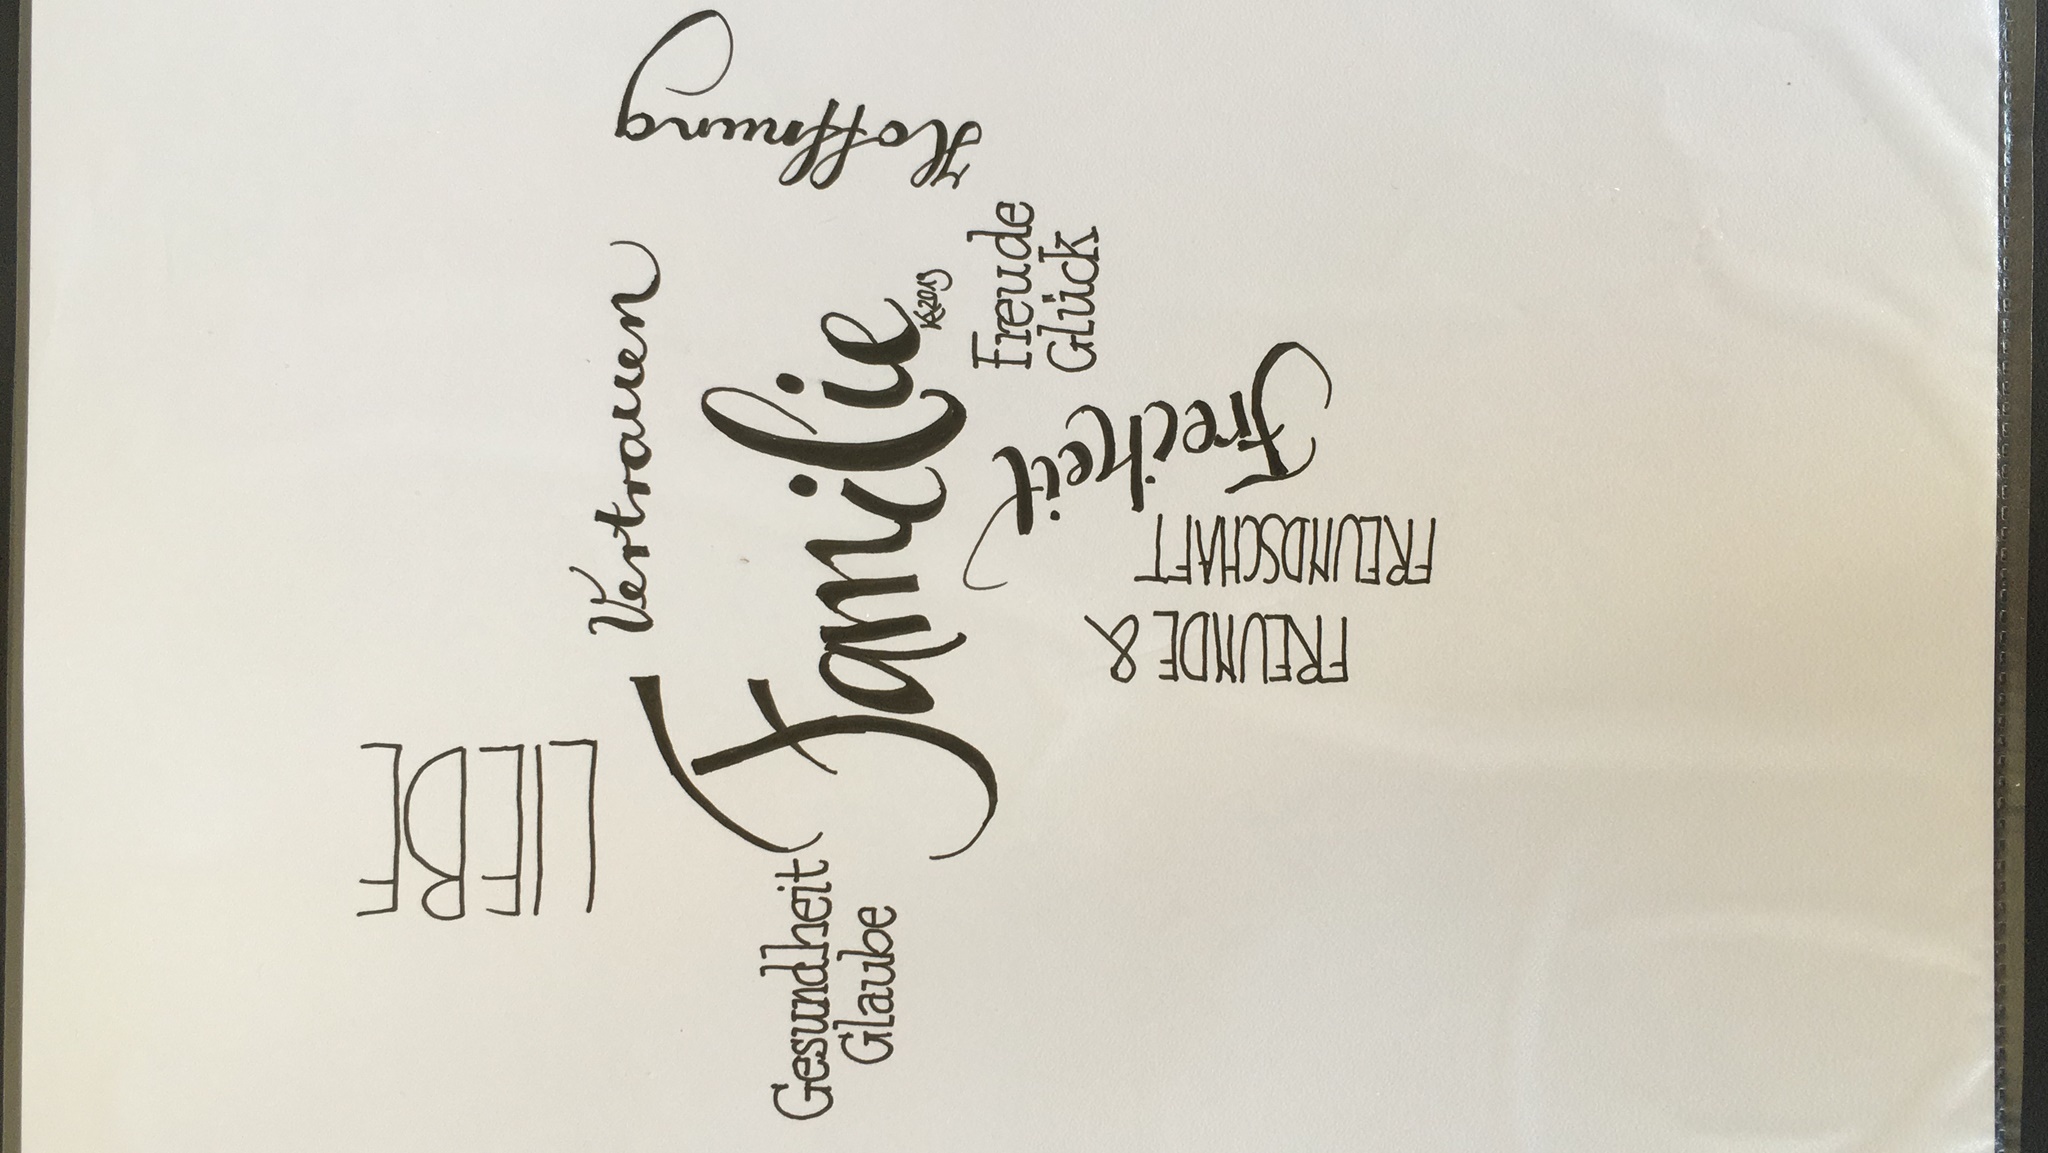 LIEBE
Vertrauen
Hoffnung
Familie
K2019
Gesundheit
Glaube
Freude
Glück
Freiheit
FREUNDE &
FREUNDSCHAFT